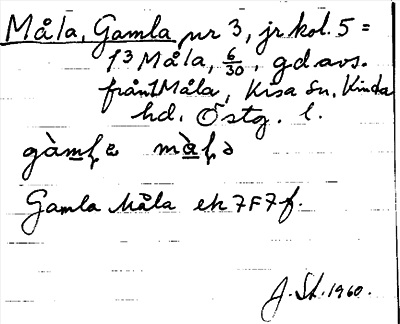 Måla, Gamla nr 3, jr kol. 5 =
1³ Måla, 6/30, gd avs.
från 1 Måla, Kisa sn, Kinda
hd. Östg. l.
gàmḷa màḷə
Gamla Måla ek 7F7f.
J. St. 1960.